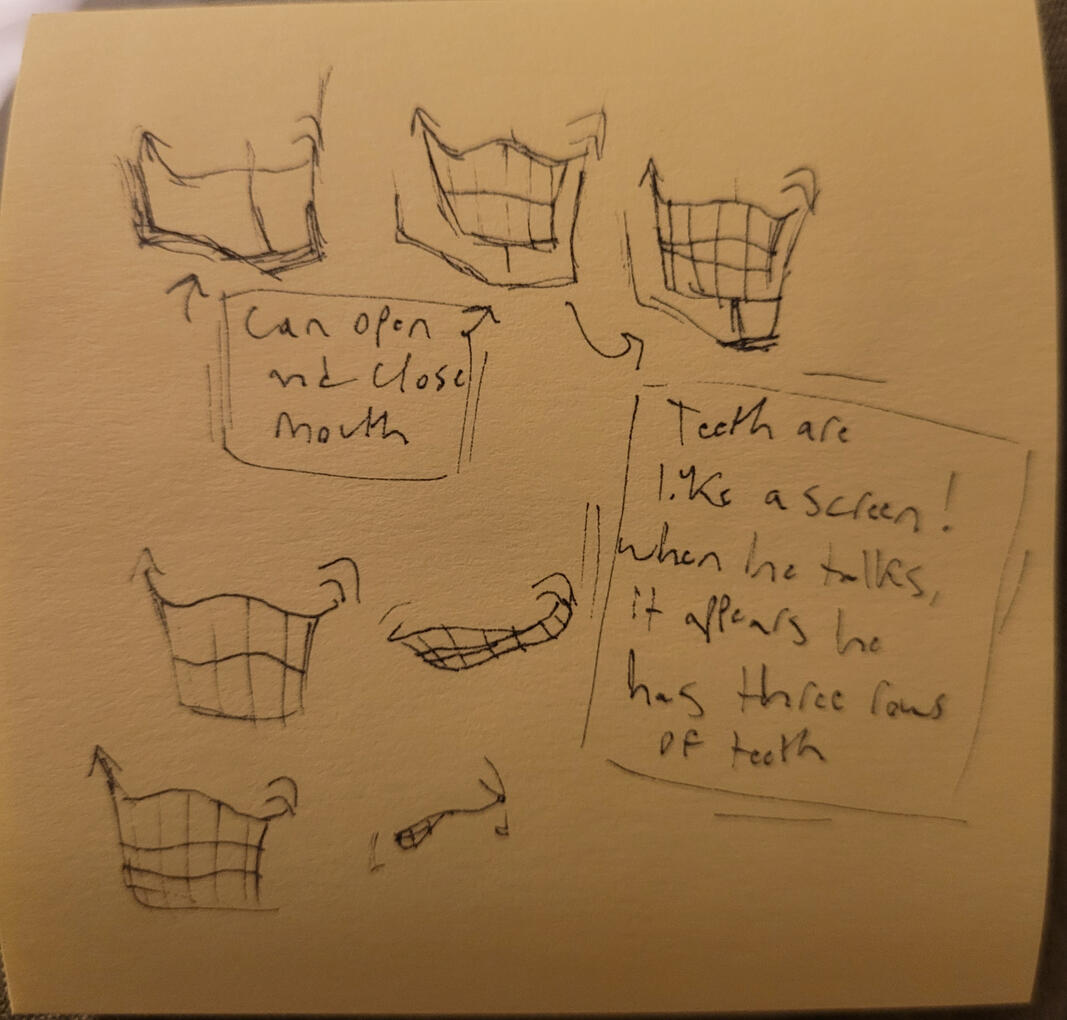 Can open
and close
mouth
Teeth are
like a screen!
when he talks,
it appears he
has three rows
of teeth